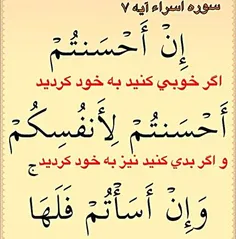 سوره اسراء آیه ۷
إِنْ أَحْسَنتُمْ
اگر خوبي کنید به خود کردید
أَحْسَنتُمْ لِأَنفُسِكُمْ
و اگر بدي کنید نیز به خود کردید ج
وَإِنْ أَسَأْتُمْ فَلَهَا